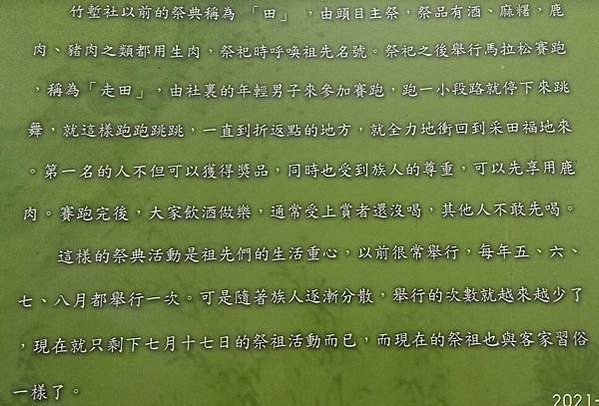 竹塹社以前的祭典稱為「田」，由頭目主祭，祭品有酒、麻糬，鹿
肉、豬肉之類都用生肉，祭祀時呼喚祖先名號。祭祀之後舉行馬拉松賽跑
，稱為「走田」，由社裏的年輕男子來參加賽跑，跑一小段路就停下來跳
舞，就這樣跑跑跳跳，一直到折返點的地方，就全力地衝回到采田福地來
。第一名的人不但可以獲得獎品，同時也受到族人的尊重，可以先享用鹿
肉。賽跑完後，大家飲酒做樂，通常受上賞者還沒喝，其他人不敢先喝。
這樣的祭典活動是祖先們的生活重心，以前很常舉行，每年五、六、
七、八月都舉行一次。可是隨著族人逐漸分散，舉行的次數就越來越少了
，現在就只剩下七月十七日的祭祖活動而已，而現在的祭祖也與客家習俗
一樣了。
2021-